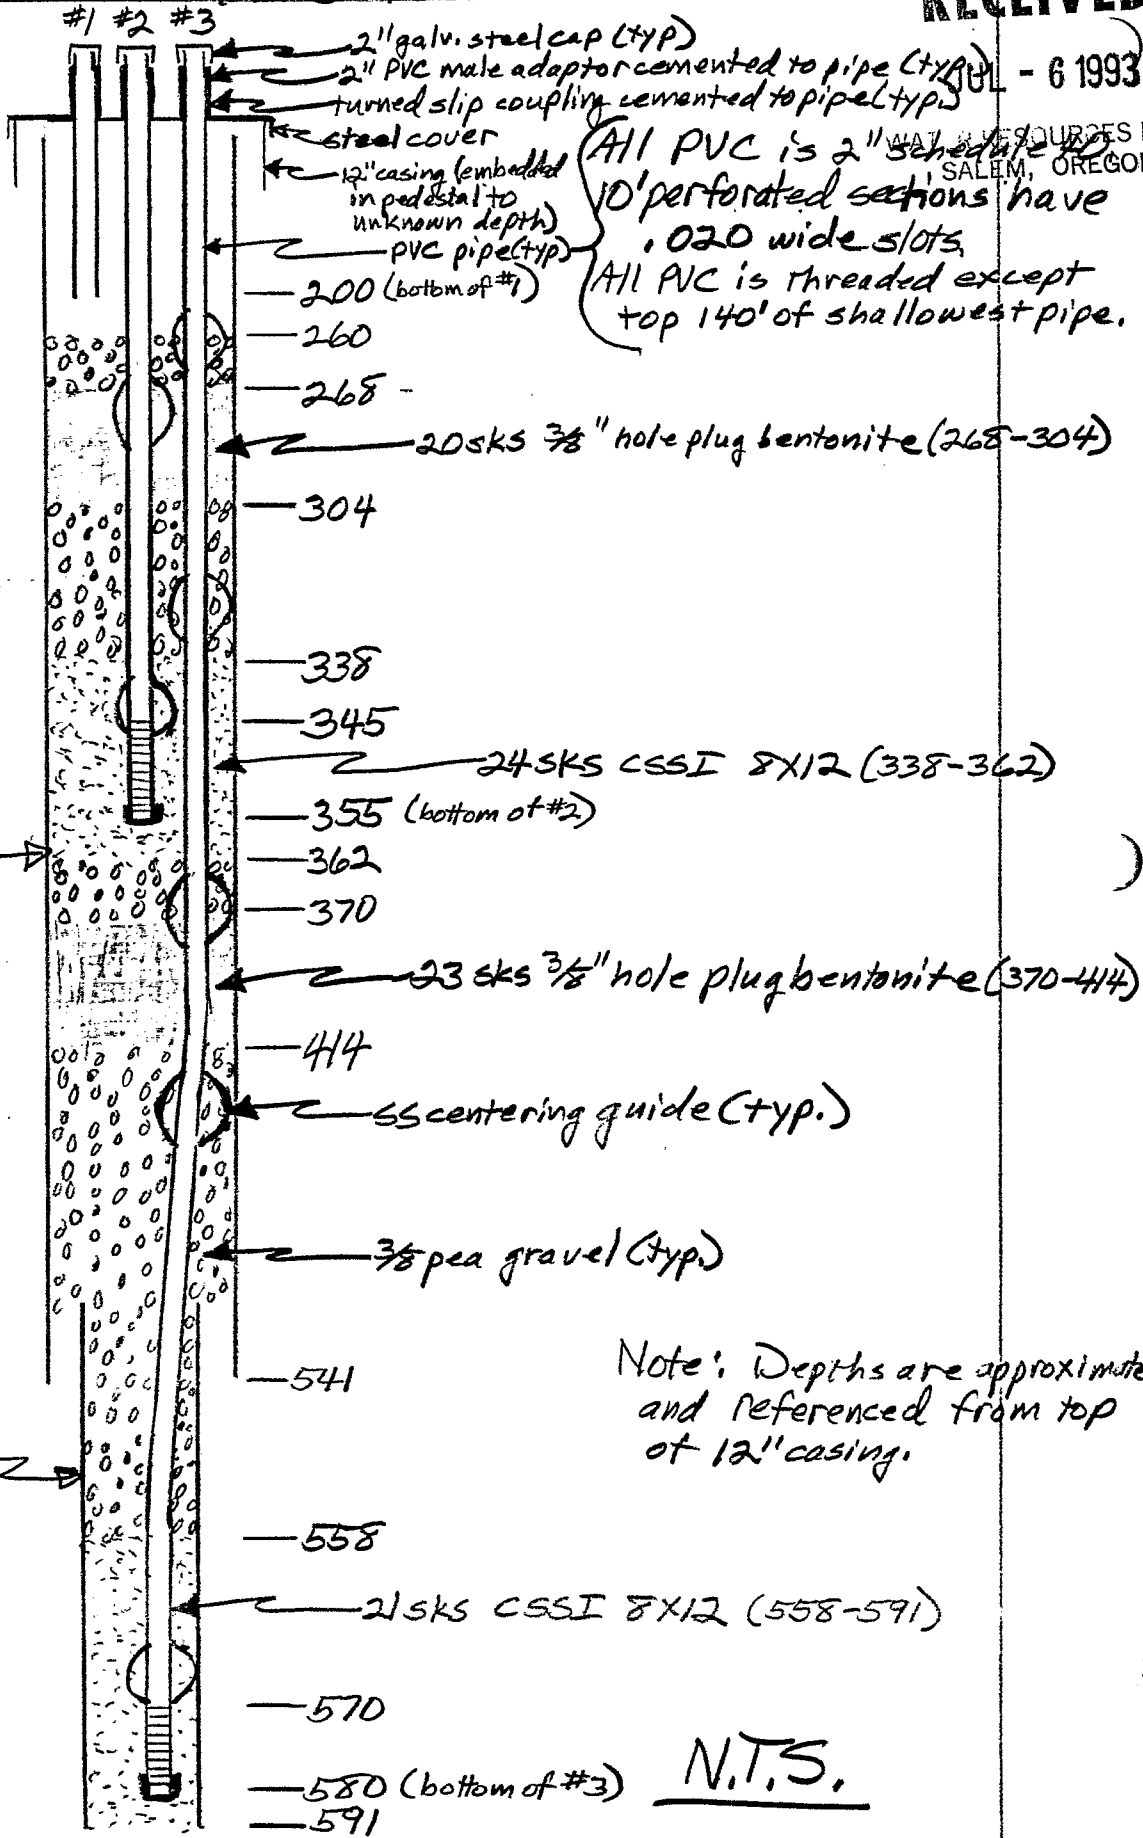 RECEIVED
#1 #2 #3
2" galv. steel cap (typ)
2" PVC male adaptor cemented to pipe (typ.)
JUL - 6 1993
turned slip coupling cemented to pipe (typ.)
steel cover
WATER RESOURCES
SALEM, OREGON
12" casing (embedded
in pedestal to
unknown depth)
PVC pipe (typ)
All PVC is 2" schedule 40,
10' perforated sections have
.020 wide slots,
All PVC is threaded except
top 140' of shallowest pipe.
200 (bottom of #1)
260
268
20 sks 3/8" hole plug bentonite (268-304)
304
338
345
24 sks CSSI 8X12 (338-362)
355 (bottom of #2)
362
370
23 sks 3/8" hole plug bentonite (370-414)
414
ss centering guide (typ.)
3/8 pea gravel (typ.)
541
Note: Depths are approximate
and referenced from top
of 12" casing.
558
21 sks CSSI 8X12 (558-591)
570
580 (bottom of #3)
591
N.T.S.